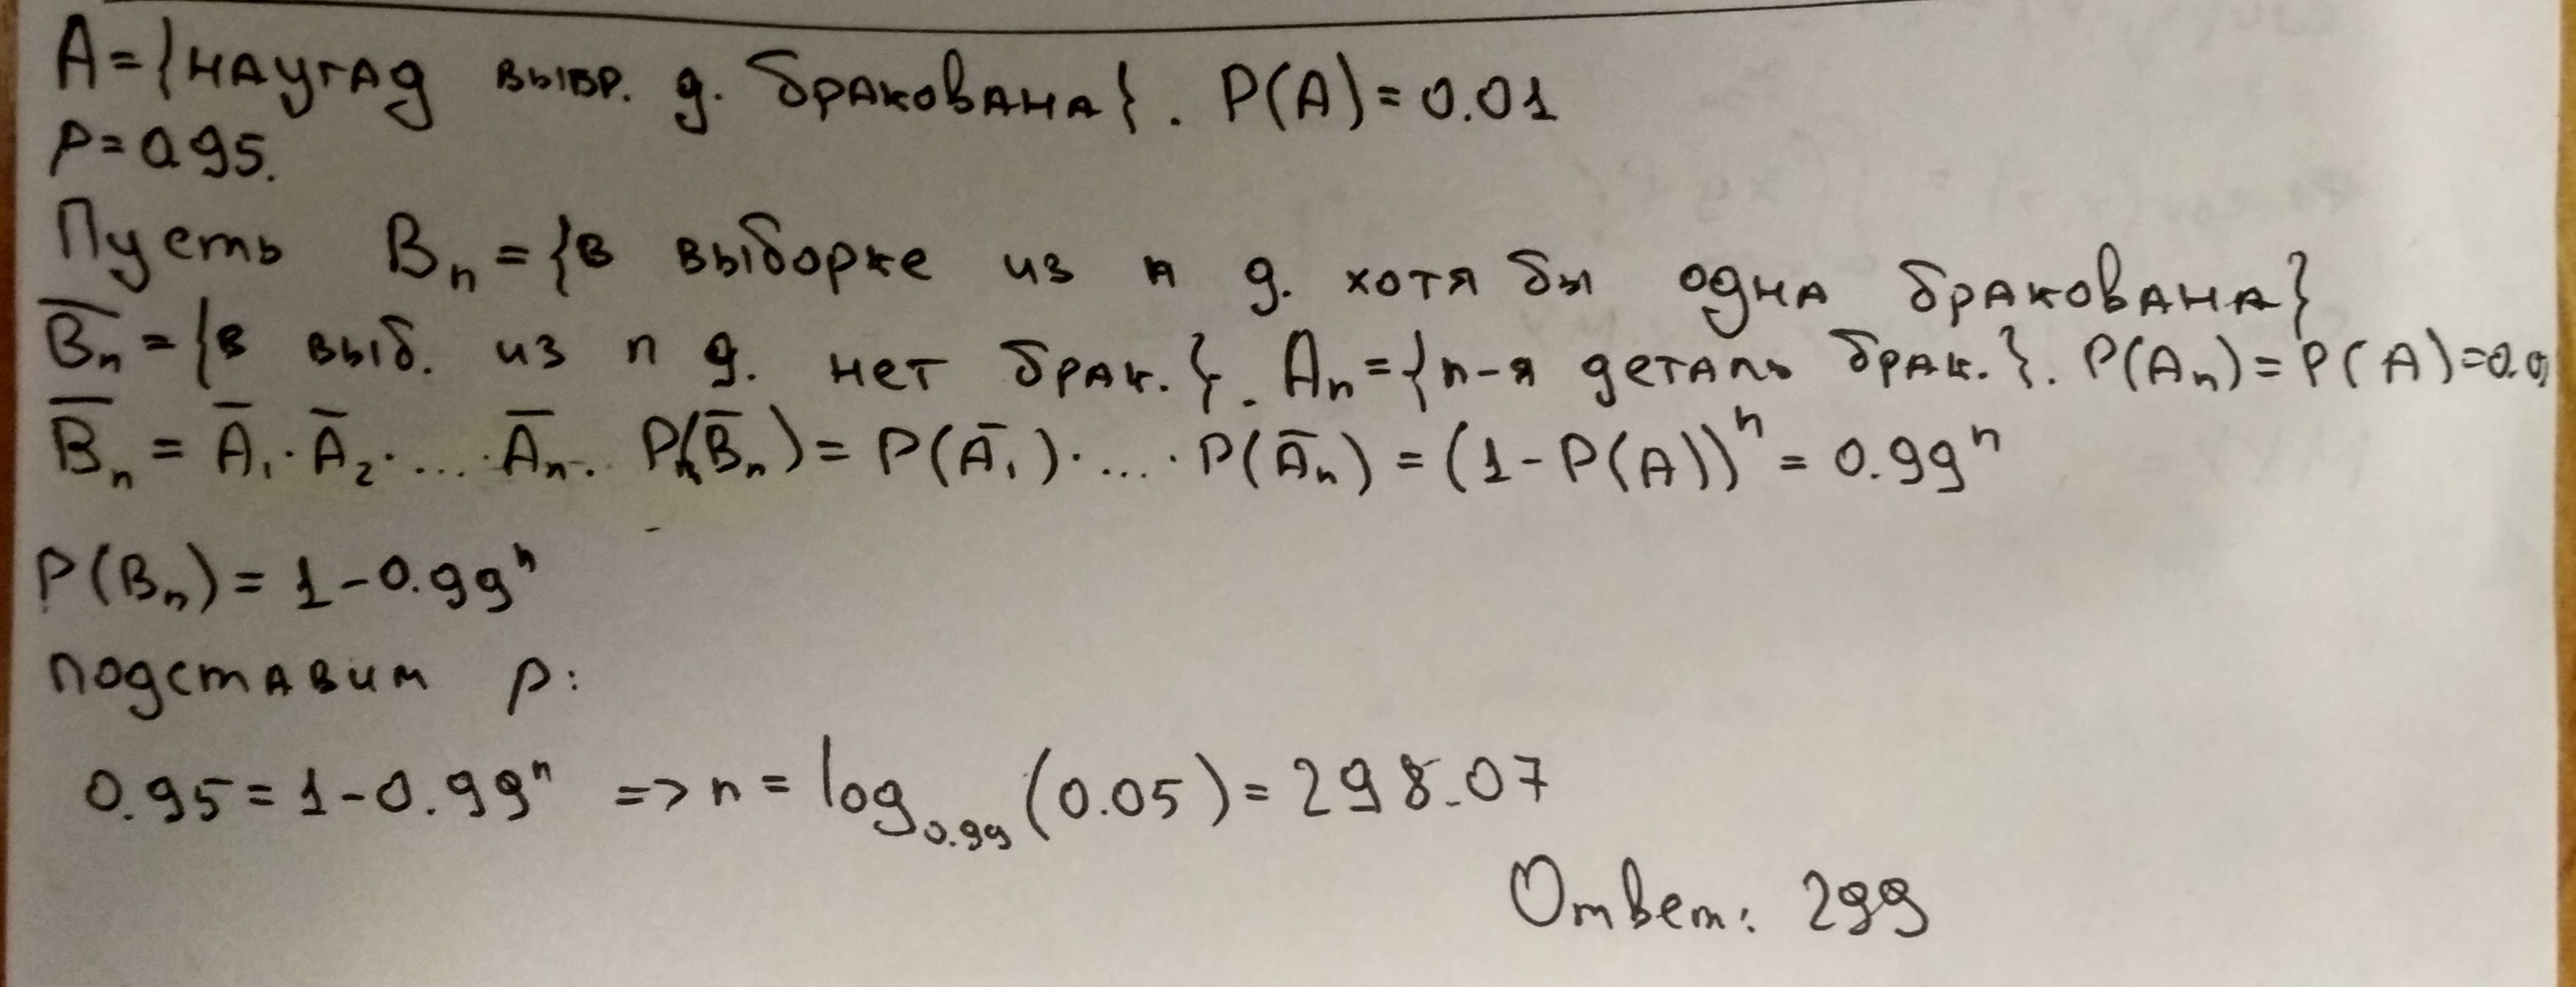 A={наугад выбр. д. бракована}. P(A)=0.01
p=0.95.
Пусть Bₙ={в выборке из n д. хотя бы одна бракована}
B̅ₙ={в выб. из n д. нет брак.}. Aₙ={n-я деталь брак.}. P(Aₙ)=P(A)=0.0
B̅ₙ = A̅₁·A̅₂·...·A̅ₙ. P(B̅ₙ)= P(A̅₁)·...·P(A̅ₙ)=(1-P(A))ⁿ= 0.99ⁿ
P(Bₙ)= 1-0.99ⁿ
подставим p:
0.95=1-0.99ⁿ => n = log₀.₉₉(0.05)= 298.07
Ответ: 299